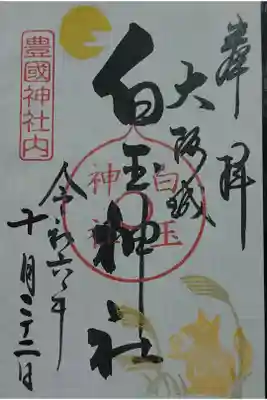 奉拝
大阪城
白玉神社
白玉神社
豊國神社内
令和六年
十月二十二日